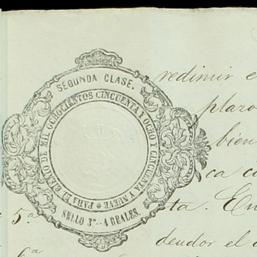 SEGUNDA CLASE.
PARA EL BIENIO DE MIL OCHOCIENTOS CINCUENTA Y OCHO Y CINCUENTA Y NUEVE
SELLO 3º 4 REALES.
redimir e
plazo
bien
ca ca
5.ª ta. En
deudor el
6.ª